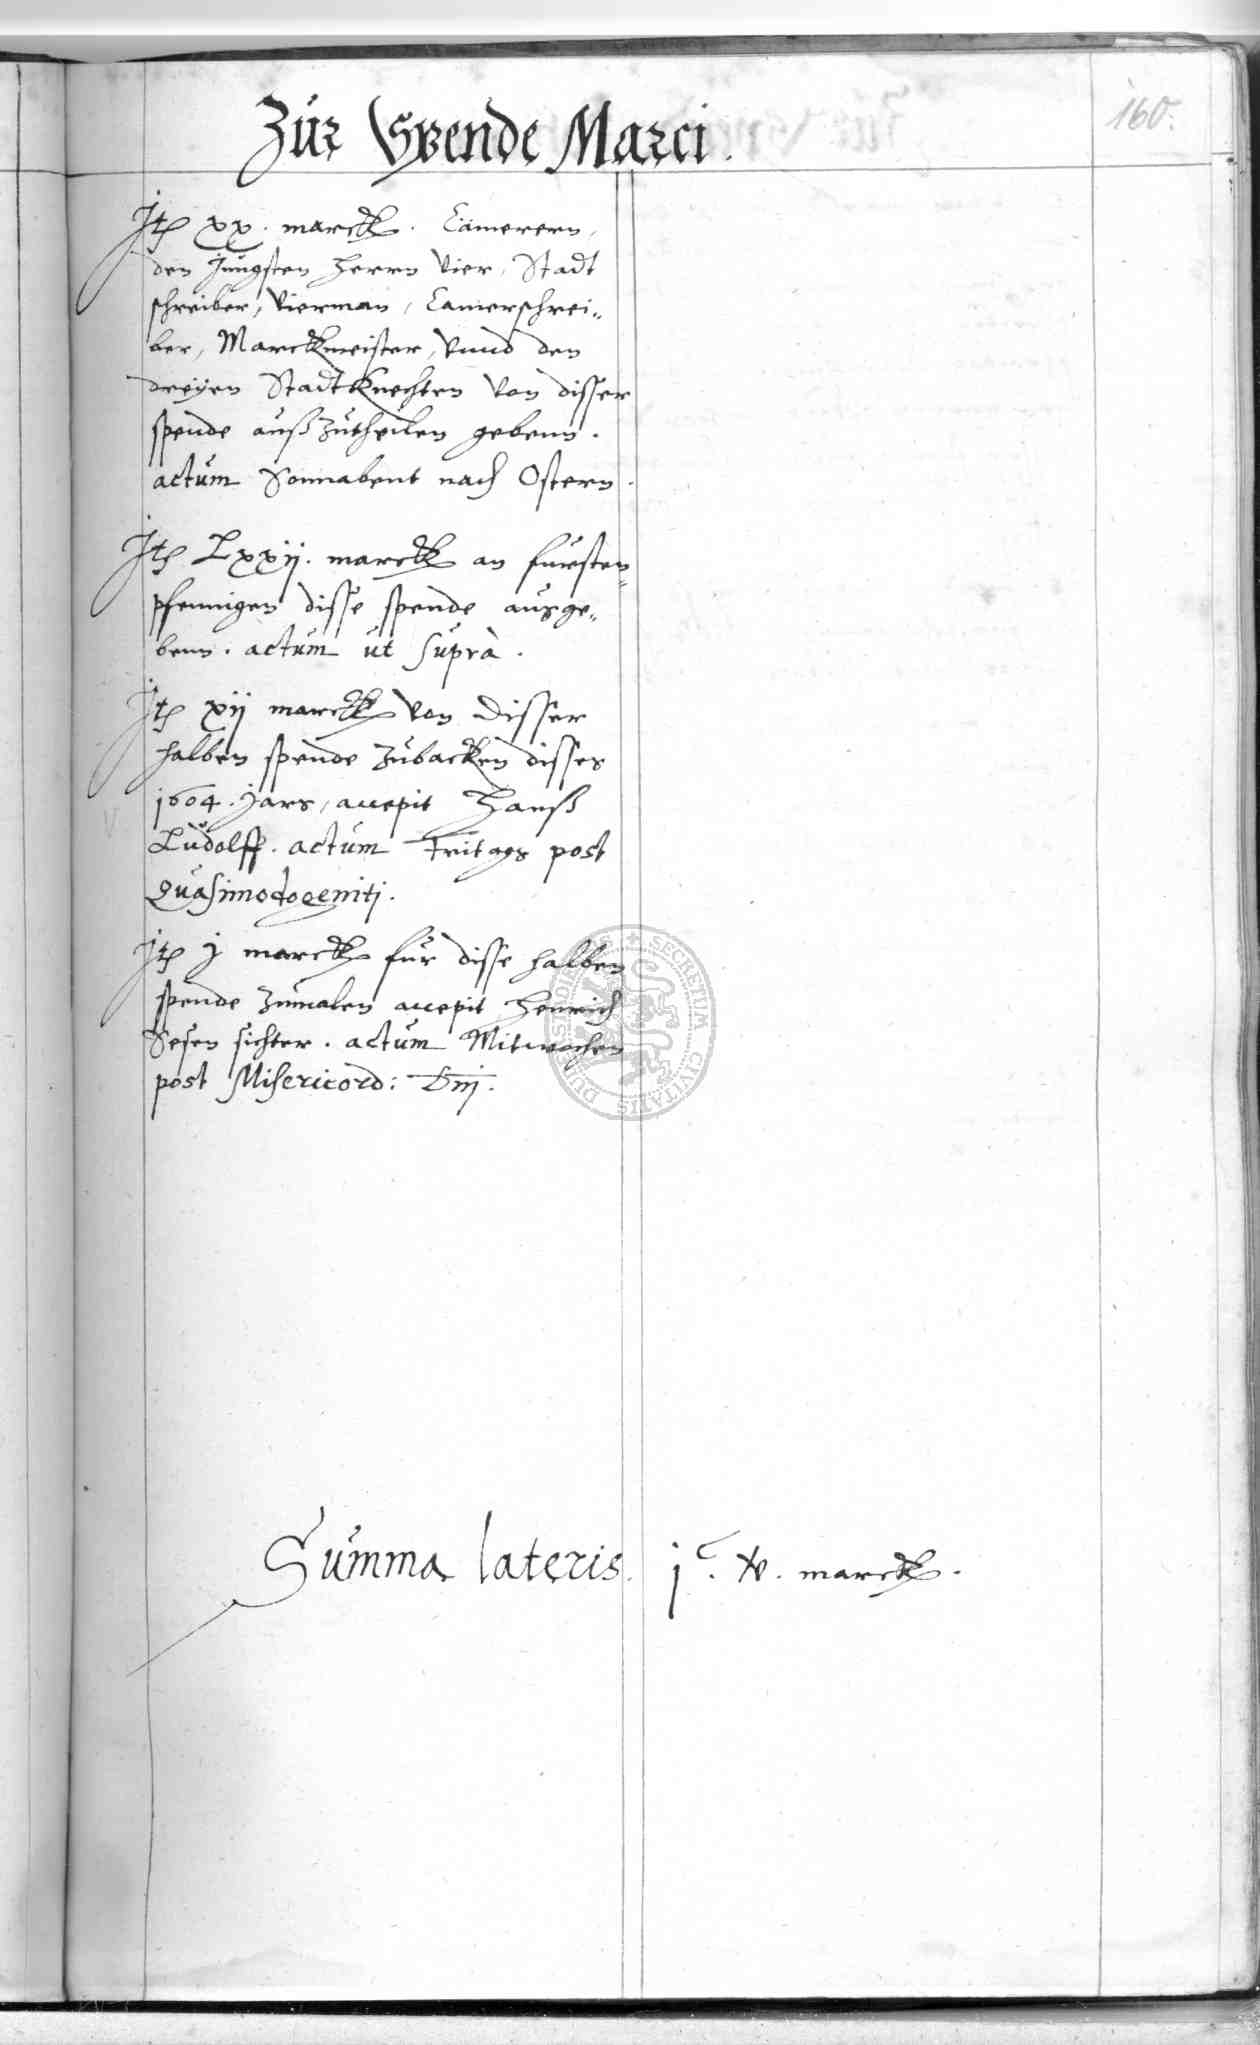 160.
Zur Spende Marci.
Itē xx. marck. Camerern,
den Jungsten Herrn Vier, Stadt
schreiber, Vierman, Camerschrei„
ber, Marckmeister, Vnnd den
dreyen Stadtknechten von disser
spende außzutheilen gebenn.
actum Sonnabent nach Ostern.
Itē Lxxij. marck an fursten„
pfennigen disse spende ausge„
benn. actum ut supra.
Itē xij marck von disser
halben spende zubacken disses
1604. Jars, accepit Hanß
Ludolff. actum Fritags post
Quasimodogeniti.
Itē j marck für disse halben
spende zumalen accepit Henrich
Sesen sichter. actum Mitwochen
post Misericord: Dnj.
SECRETUM CIVITATIS
Summa lateris. jc. v. marck.